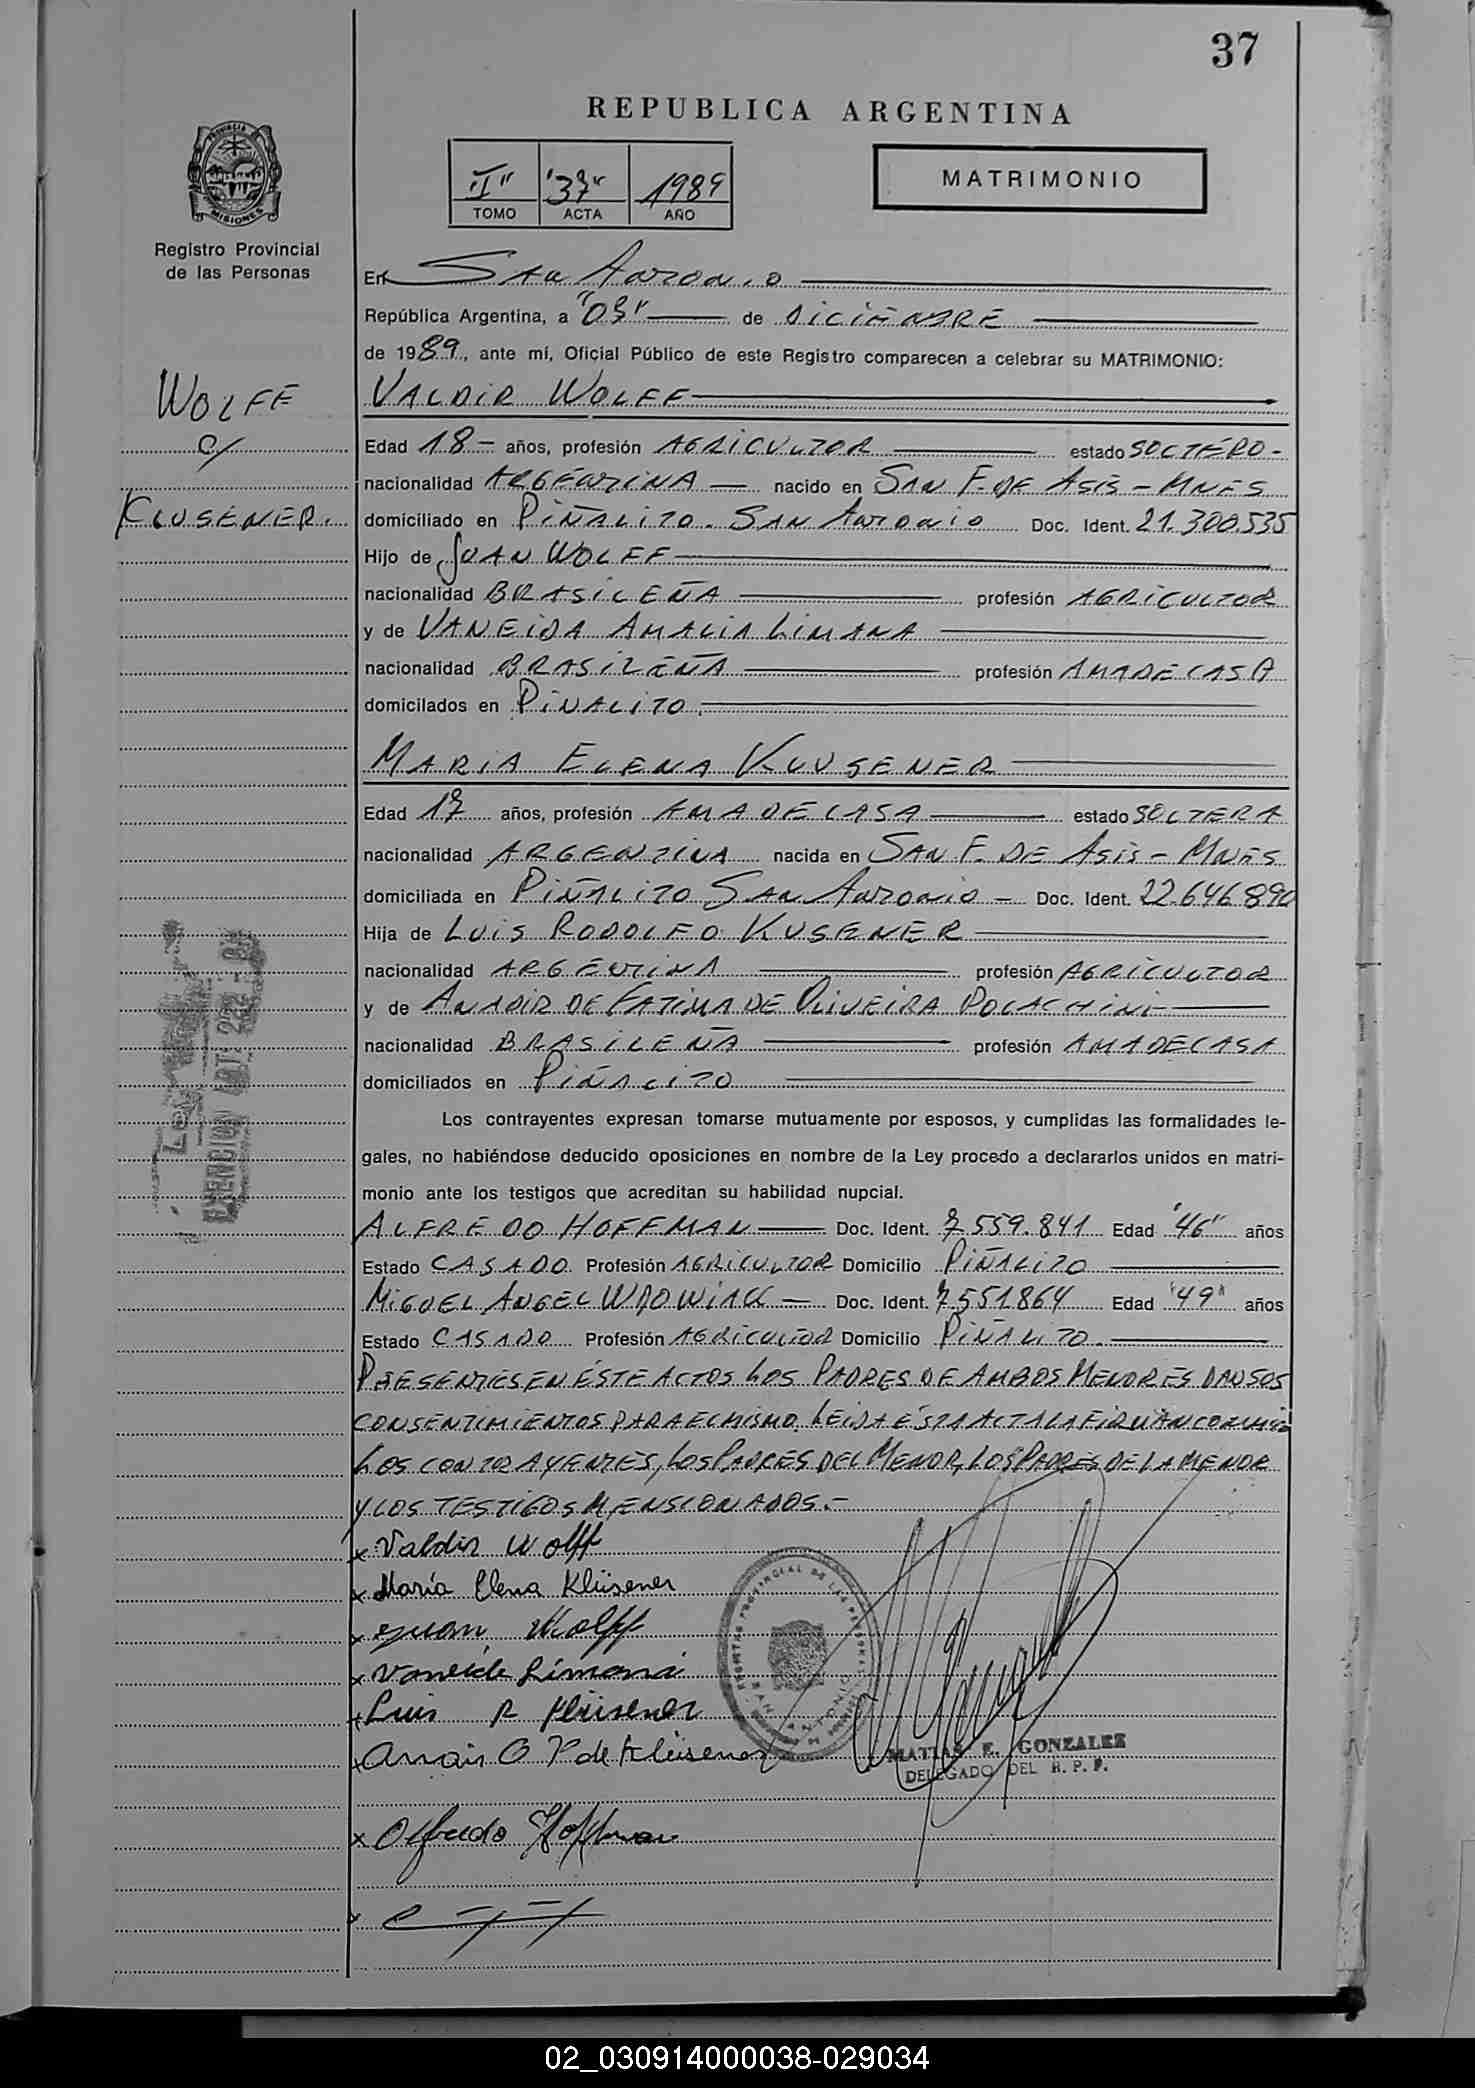 37
REPUBLICA ARGENTINA
"I" "37" 1989
TOMO ACTA AÑO
MATRIMONIO
PROVINCIA DE MISIONES
Registro Provincial
de las Personas
En San Antonio
República Argentina, a "03" de DICIEMBRE
de 1989, ante mí, Oficial Público de este Registro comparecen a celebrar su MATRIMONIO:
WOLFF
c/
KLUSENER.
VALDIR WOLFF
Edad 18 - años, profesión AGRICULTOR estado SOLTERO -
nacionalidad ARGENTINA - nacido en SAN F. DE ASIS - MNES
domiciliado en PIÑALITO. SAN ANTONIO Doc. Ident. 21.300.535
Hijo de JUAN WOLFF
nacionalidad BRASILEÑA profesión AGRICULTOR
y de VANEIDA AMALIA LIMANA
nacionalidad BRASILEÑA profesión AMA DE CASA
domicilados en PIÑALITO.
MARIA ELENA KLUSENER
Edad 17 años, profesión AMA DE CASA estado SOLTERA
nacionalidad ARGENTINA nacida en SAN F. DE ASIS - MNES
domiciliada en PIÑALITO SAN ANTONIO - Doc. Ident. 22.646.890
Hija de LUIS RODOLFO KUSENER
nacionalidad ARGENTINA profesión AGRICULTOR
y de ANADIR DE FATIMA DE OLIVEIRA POLACHINI
nacionalidad BRASILEÑA profesión AMA DE CASA
domiciliados en PIÑALITO
Los contrayentes expresan tomarse mutuamente por esposos, y cumplidas las formalidades le-
gales, no habiéndose deducido oposiciones en nombre de la Ley procedo a declararlos unidos en matri-
monio ante los testigos que acreditan su habilidad nupcial.
ALFREDO HOFFMAN Doc. Ident. 7.559.841 Edad "46" años
Estado CASADO Profesión AGRICULTOR Domicilio PIÑALITO
MIGUEL ANGEL WDOWIAK - Doc. Ident. 7.551864 Edad "49" años
Estado CASADO Profesión AGRICULTOR Domicilio PIÑALITO.
PRESENTES EN ÉSTE ACTOS LOS PADRES DE AMBOS MENORES DAN SOS
CONSENTIMIENTOS PARA EL MISMO. LEIDA ÉSTA ACTA LA FIRMAN CONMIGO
LOS CONTRAYENTES, LOS PADRES DEL MENOR, LOS PADRES DE LA MENOR
Y LOS TESTIGOS MENSIONADOS.-
x Valdir Wolff
x María Elena Klüsener
x Juan Wolff
x Vaneide Limana
x Luis R Klüsener
x Anair O P de Klüsener
REGISTRO PROVINCIAL DE LAS PERSONAS
SAN ANTONIO
MATIAS E. GONZALEZ
DELEGADO DEL R. P. P.
x Alfredo Hoffman
x
02_030914000038-029034